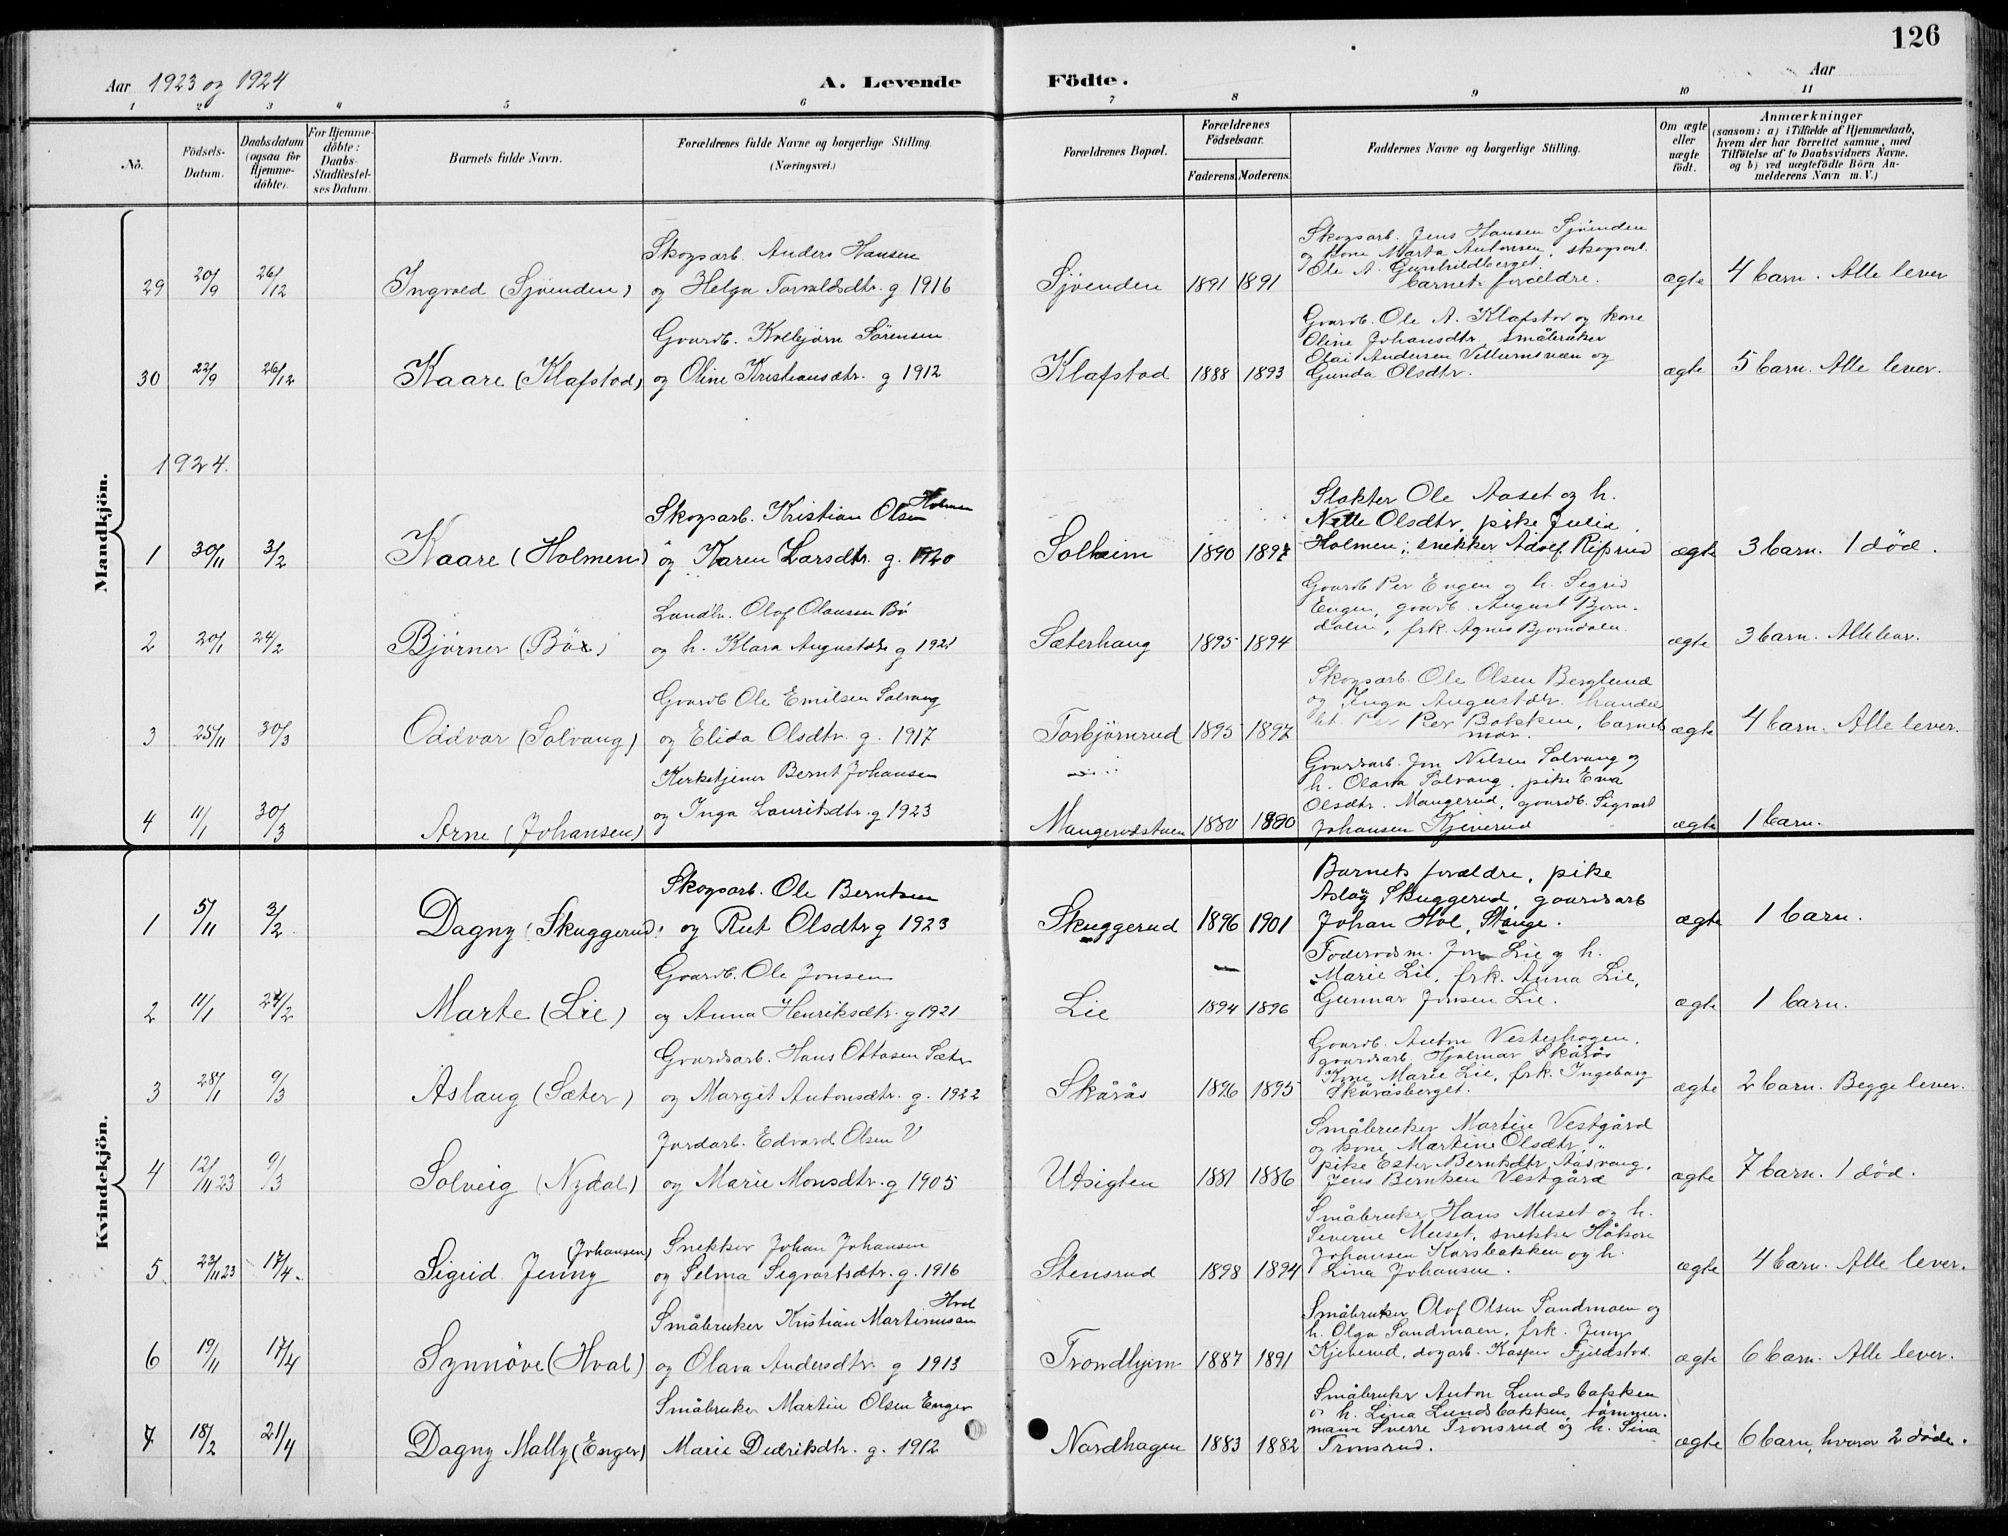 126
Aar 1923 og 1924
A. Levende Födte.
Aar
1 2 3 4 5 6 7 8 9 10 11
No.
Födsels-Datum.
Daabsdatum (ogsaa for Hjemme-döbte).
For Hjemme-döbte: Daabs-Stadfæstel-ses Datum.
Barnets fulde Navn.
Forældrenes fulde Navne og borgerlige Stilling.
(Næringsvei.)
Forældrenes Bopæl.
Forældrenes Födselsaar.
Faderens. Moderens.
Faddernes Navne og borgerlige Stilling.
Om ægte eller uægte födt.
Anmærkninger
(saasom: a) i Tilfælde af Hjemmedaab,
hvem der har forrettet samme, med
Tilföielse af to Daabsvidners Navne.
og b) ved uægtefödte Börn An-
melderens Navn m. V.)
Mandkjön.
Skogsarb. Anders Hansen
Skogsarb. Jens Hansen Sjøenden
og kone Marta Antonsen, skogsarb.
Ole A. Gunhildberget,
29 20/9 26/12 Ingvald (Sjøenden) og Helga Torvaldsdtr. g 1916 Sjøenden 1891 1891 barnets forældre. ægte 4 barn. Alle lever
Gaardb. Kolbjørn Sørensen
Gaardb. Ole A. Klafstad og kone
Oline Johansdtr, småbruker
Olai Andersen
30 22/9 26/12 Kaare (Klafstad) og Oline Kristiansdtr. g 1912 Klafstad 1888 1893 Gunda Olsdtr. ægte 5 barn. Alle lever.
1924.
Skogsarb. Kristian Olsen Holmen
Slakter Ole Aaset og h.
Nille Olsdtr, pike Julie
1 30/11 3/2 Kaare (Holmen) og Karen Larsdtr. g. 1920 Solheim 1890 1897 Holmen; snekker Adolf Risrud ægte 3 barn. 1 död.
Landh. Olaf Olaussen Bö
Gaardb Per Engen og h. Sigrid
Engen, gaardb. August Bjørn-
2 20/1 24/2 Bjørner (Bö) og h. Klara Augustdtr g 1921 Sæterhaug 1895 1894 dalen, frk. Agnes Bjørndalen. ægte 3 barn. Alle lever.
Gaardb Ole Emilsen Solvang
Skogsarb. Ole Olsen Berglund
og Inga Augustdtr. handels
bt. Per Bakken, barnets
3 25/11 30/3 Oddvar (Solvang) og Elida Olsdtr. g. 1917 Torbjørnrud 1895 1897 mor. ægte 4 barn. Alle lever.
Kirketjener Bernt Johansen
Gaardsarb. Jon Nilsen Solvang og
h. Olava Solvang, pike Eva
Olsdtr. Mangerud, gaardb. Sigvart
4 11/1 30/3 Arne (Johansen) og Inga Lauritsdtr. g 1923 Mangerudstuen 1880 1890 Johansen Kjeverud ægte 1 barn.
Kvindekjön.
Skogsarb. Ole Berntsen
Barnets forældre, pike
Aslaug Skuggerud, gaardsarb
1 5/11 3/2 Dagny (Skuggerud) og Rut Olsdtr g 1923 Skuggerud 1896 1901 Johan Hol, Stange. ægte 1 barn.
Gaardb. Ole Jonsen
Föderådsm. Jon Lie og h.
Marie Lie, frk. Anna Lie,
2 11/1 24/2 Marte (Lie) og Anna Henriksdtr. g 1921 Lie 1894 1896 Gunnar Jonsen Lie. ægte 1 barn.
Gaardsarb. Hans Ottosen Sæter
Gaardb. Anton Vesterhagen,
gaardsarb. Hjalmar Skårås
Kone Marie Lie, frk. Ingeborg
3 28/1 9/3 Aslaug (Sæter) og Margit Antonsdtr. g. 1922 Skårås 1896 1895 Skåråsberget. ægte 2 barn. Begge lever.
Jordarb. Edvard Olsen
Småbruker Martin Vestgård
og kone Martine Olsdtr,
pike Ester Berntsdtr Aasvang,
4 12/11 23 9/3 Solveig (Nydal) og Marie Monsdtr. g 1905 Utsigten 1881 1886 Jens Berntsen Vestgård ægte 7 barn. 1 död.
Snekker Johan Johansen
Småbruker Hans Muset og h.
Severine Muset, snekker Håkon
Johansen Korsbakken og h.
5 23/11 23 17/4 Sigrid Jenny (Johansen) og Selma Sigvartsdtr. g. 1916 Stensrud 1898 1894 Lina Johansen. ægte 4 barn. Alle lever.
Småbruker Kristian Martinusen Hval
Småbruker Olaf Olsen Sandmoen og
h. Olga Sandmoen, frk. Jenny
6 19/11 17/4 Synnöve (Hval) og Olava Andersdtr. g 1913 Trondhjem 1887 1891 Kjeverud, dagarb. Kasper Fjeldstad. ægte 6 barn. Alle lever.
Småbruker Martin Olsen Enger
Småbruker Anton Lundsbakken
og h. Lina Lundsbakken, tömmer-
mann Sverre Tronsrud og h. Sina
7 18/2 21/4 Dagny Mally (Enger) Marie Didriksdtr. g. 1912 Nordhagen 1883 1882 Tronsrud. ægte 6 barn, hvorav 2 döde.